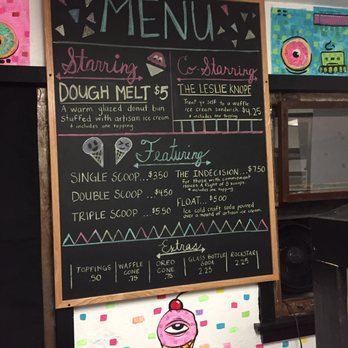 MENU
Starring
DOUGH MELT $5
A warm glazed donut bun
stuffed with artisan ice cream
* includes one topping
Co-Starring
THE LESLIE KNOPE
Treat yo self to a waffle
ice cream sandwich $4.25
* includes one topping
Featuring
SINGLE SCOOP... $3.50
DOUBLE SCOOP... $4.50
TRIPLE SCOOP... $5.50
THE INDECISION... $7.50
For those with commitment
issues. A flight of 5 scoops.
* includes one topping
FLOAT... $5.00
Ice cold craft soda poured
over a mound of artisan ice cream.
Extras
TOPPINGS
.50
WAFFLE
CONE
.75
OREO
CONE
.75
GLASS BOTTLE
SODA
2.25
ROCKSTAR
2.25